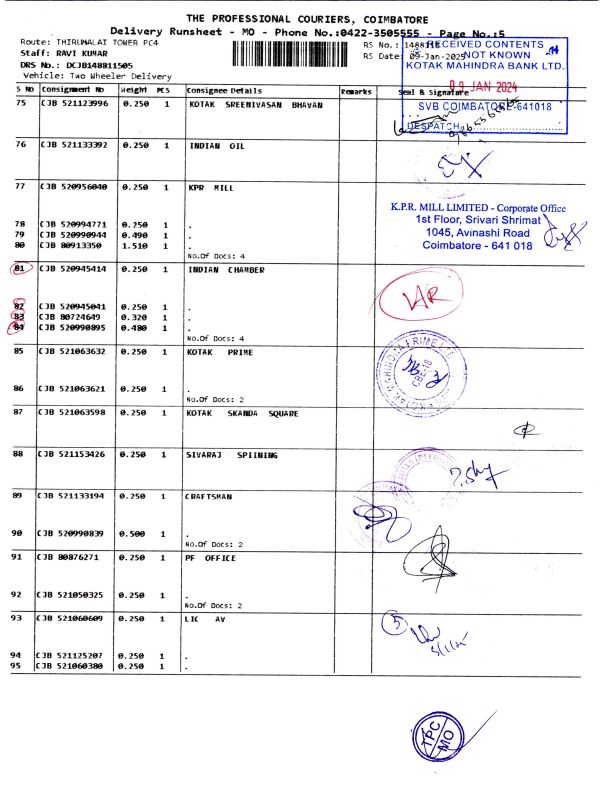 THE PROFESSIONAL COURIERS, COIMBATORE
Delivery Runsheet - MO - Phone No.:0422-3505555 - Page No.:5
Route: THIRUMALAI TOWER PC4
Staff: RAVI KUMAR
DRS No.: DCJB148811505
Vehicle: Two Wheeler Delivery
RS No.:
RS Date: 09-Jan-2025
RECEIVED CONTENTS
NOT KNOWN
KOTAK MAHINDRA BANK LTD.
09 JAN 2024
SVB COIMBATORE-641018
DESPATCH
S No Consignment No Weight PCS Consignee Details Remarks Seal & Signature
75 CJB 521123996 0.250 1 KOTAK SREENIVASAN BHAVAN
76 CJB 521133392 0.250 1 INDIAN OIL
77 CJB 520956040 0.250 1 KPR MILL
K.P.R. MILL LIMITED - Corporate Office
1st Floor, Srivari Shrimat
1045, Avinashi Road
Coimbatore - 641 018
78 CJB 520994771 0.250 1 .
79 CJB 520990944 0.490 1 .
80 CJB 80913350 1.510 1 .
No.Of Docs: 4
81 CJB 520945414 0.250 1 INDIAN CHAMBER
82 CJB 520945041 0.250 1 .
83 CJB 80724649 0.320 1 .
84 CJB 520990895 0.480 1 .
No.Of Docs: 4
85 CJB 521063632 0.250 1 KOTAK PRIME
86 CJB 521063621 0.250 1 .
No.Of Docs: 2
87 CJB 521063598 0.250 1 KOTAK SKANDA SQUARE
88 CJB 521153426 0.250 1 SIVARAJ SPIINING
89 CJB 521133194 0.250 1 CRAFTSMAN
90 CJB 520990839 0.500 1 .
No.Of Docs: 2
91 CJB 80876271 0.250 1 PF OFFICE
92 CJB 521050325 0.250 1 .
No.Of Docs: 2
93 CJB 521060609 0.250 1 LIC AV
5
94 CJB 521125207 0.250 1 .
95 CJB 521060380 0.250 1 .
TPC
MO